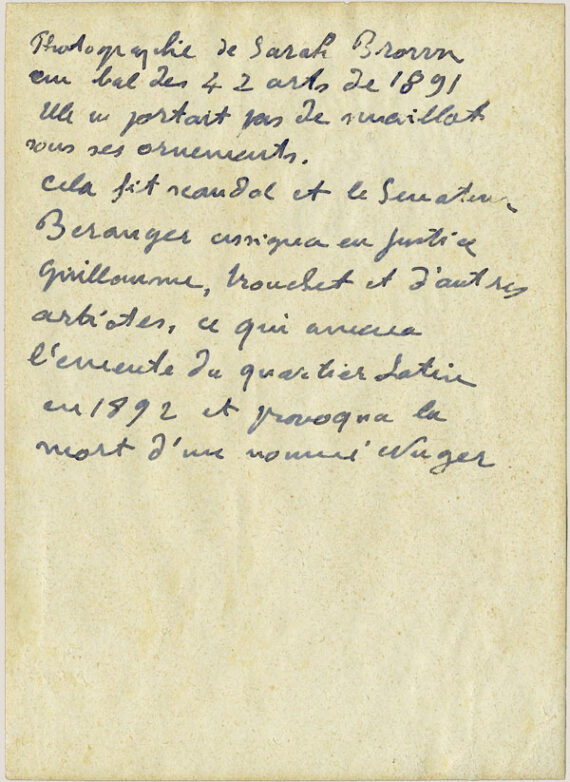 Photographie de Sarah Brown
au bal des 4 z arts de 1891
Elle ne portait pas de maillot
sous ses ornements.
Cela fit scandal et le Senateur
Beranger assigna en Justice
Guillaume, et d'autres
artistes, ce qui amena
l'emeute du quartier Latin
en 1892 et provoqua la
mort d'un nommé Nuger